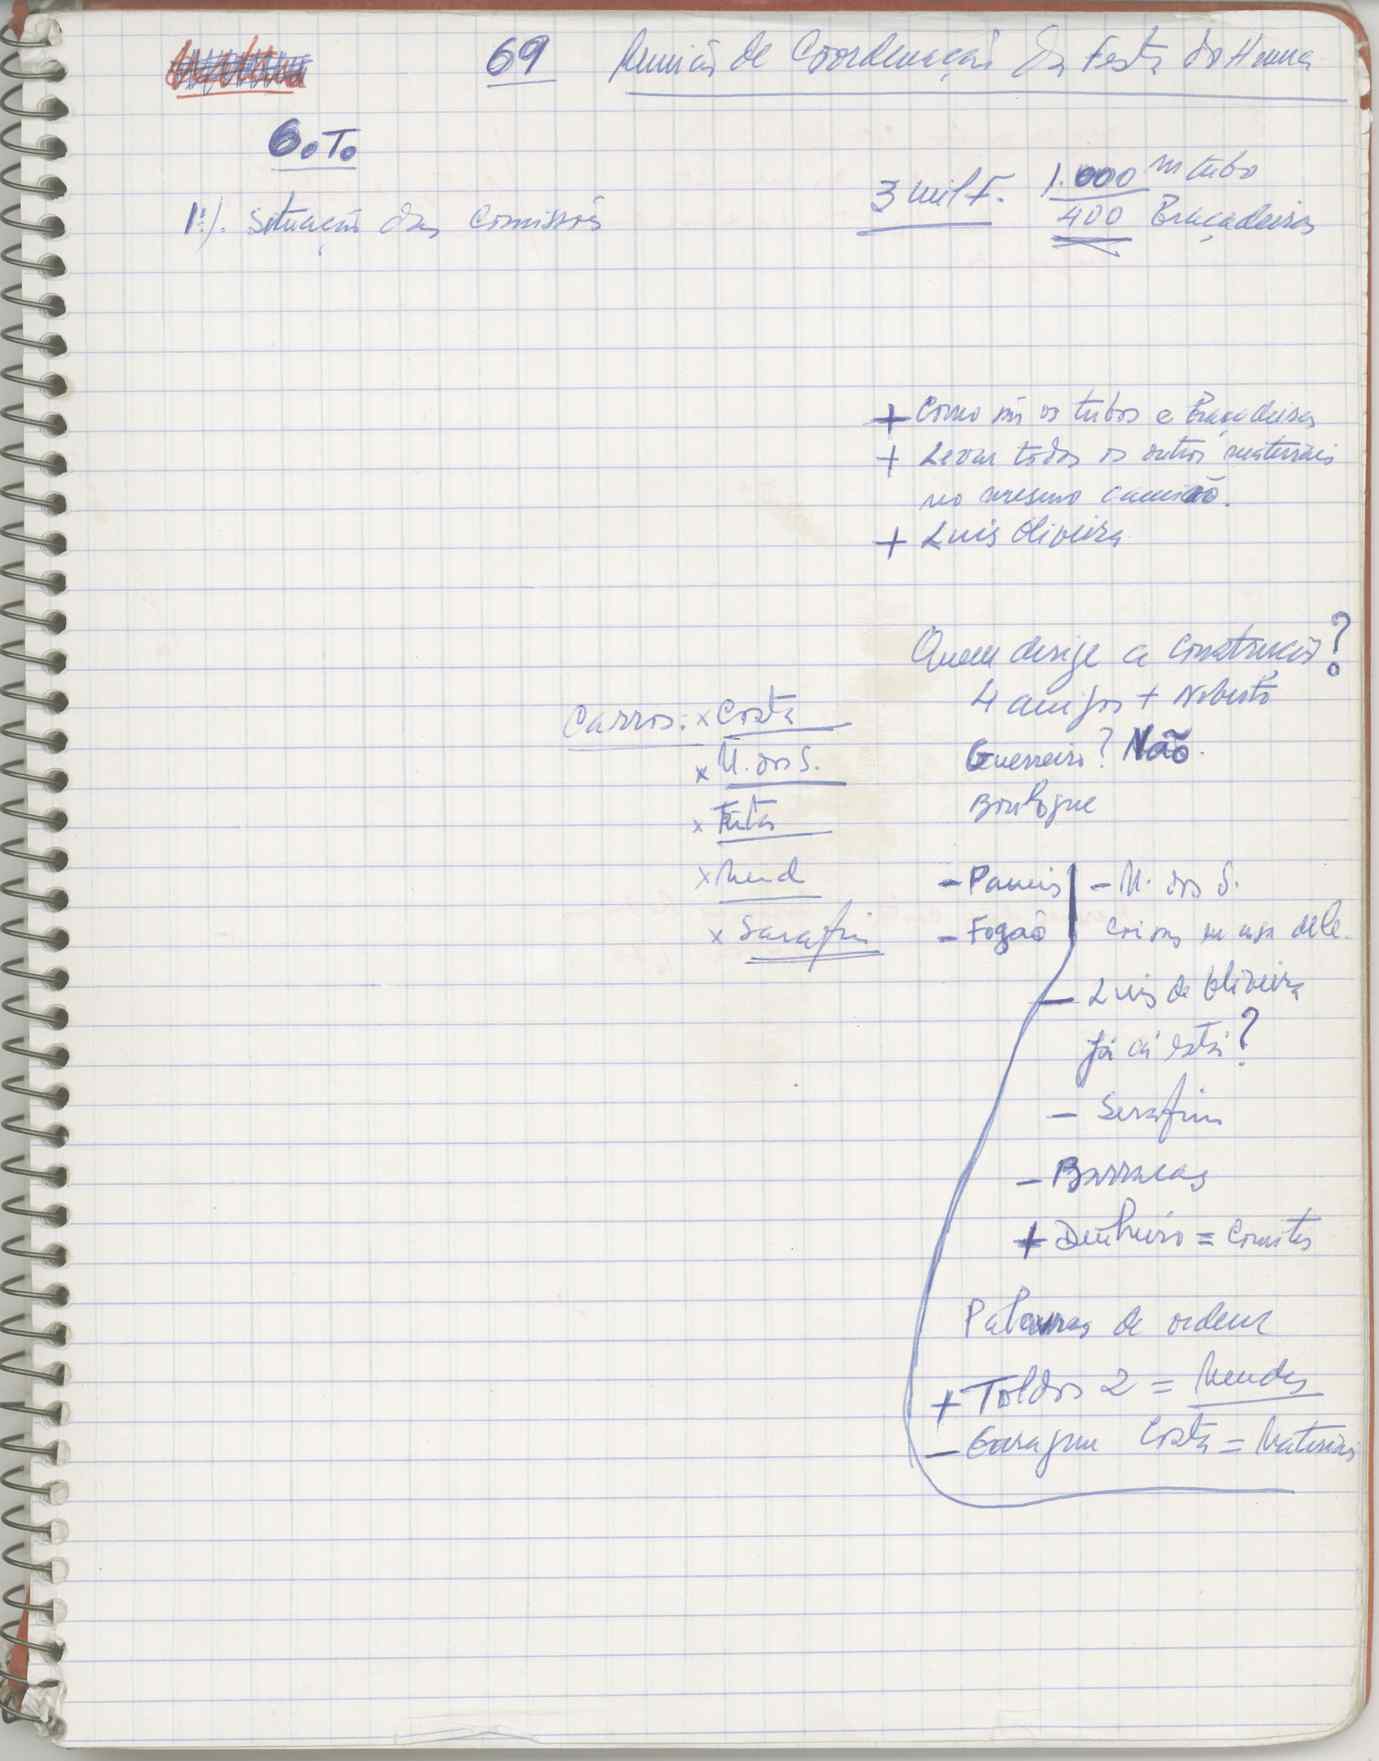 69 Reunião de Coordenação da Festa do Huma
O.T.
1º). Situação das Comissões
3 mil F. 1.000 m tubo
400 Braçadeiras
+ Como são os tubos e Braçadeiras
+ Levar todos os outros materiais
no mesmo camião.
+ Luis Oliveira
Quem dirige a construção?
4 amigos + Noberto
Guerreiro? Não.
Boulogne
Carros: x Costa
x M. dos S.
x
x Mend
x Sarafim
- Paneis - M. dos S.
- Fogão Coisas em casa dele.
- Luis de Oliveira
já cá está?
- Serafim
- Barracas
+ Dinheiro = Comités
Palavras de ordem
+ Toldos 2 = Mendes
- Garagem Costa = Materiais